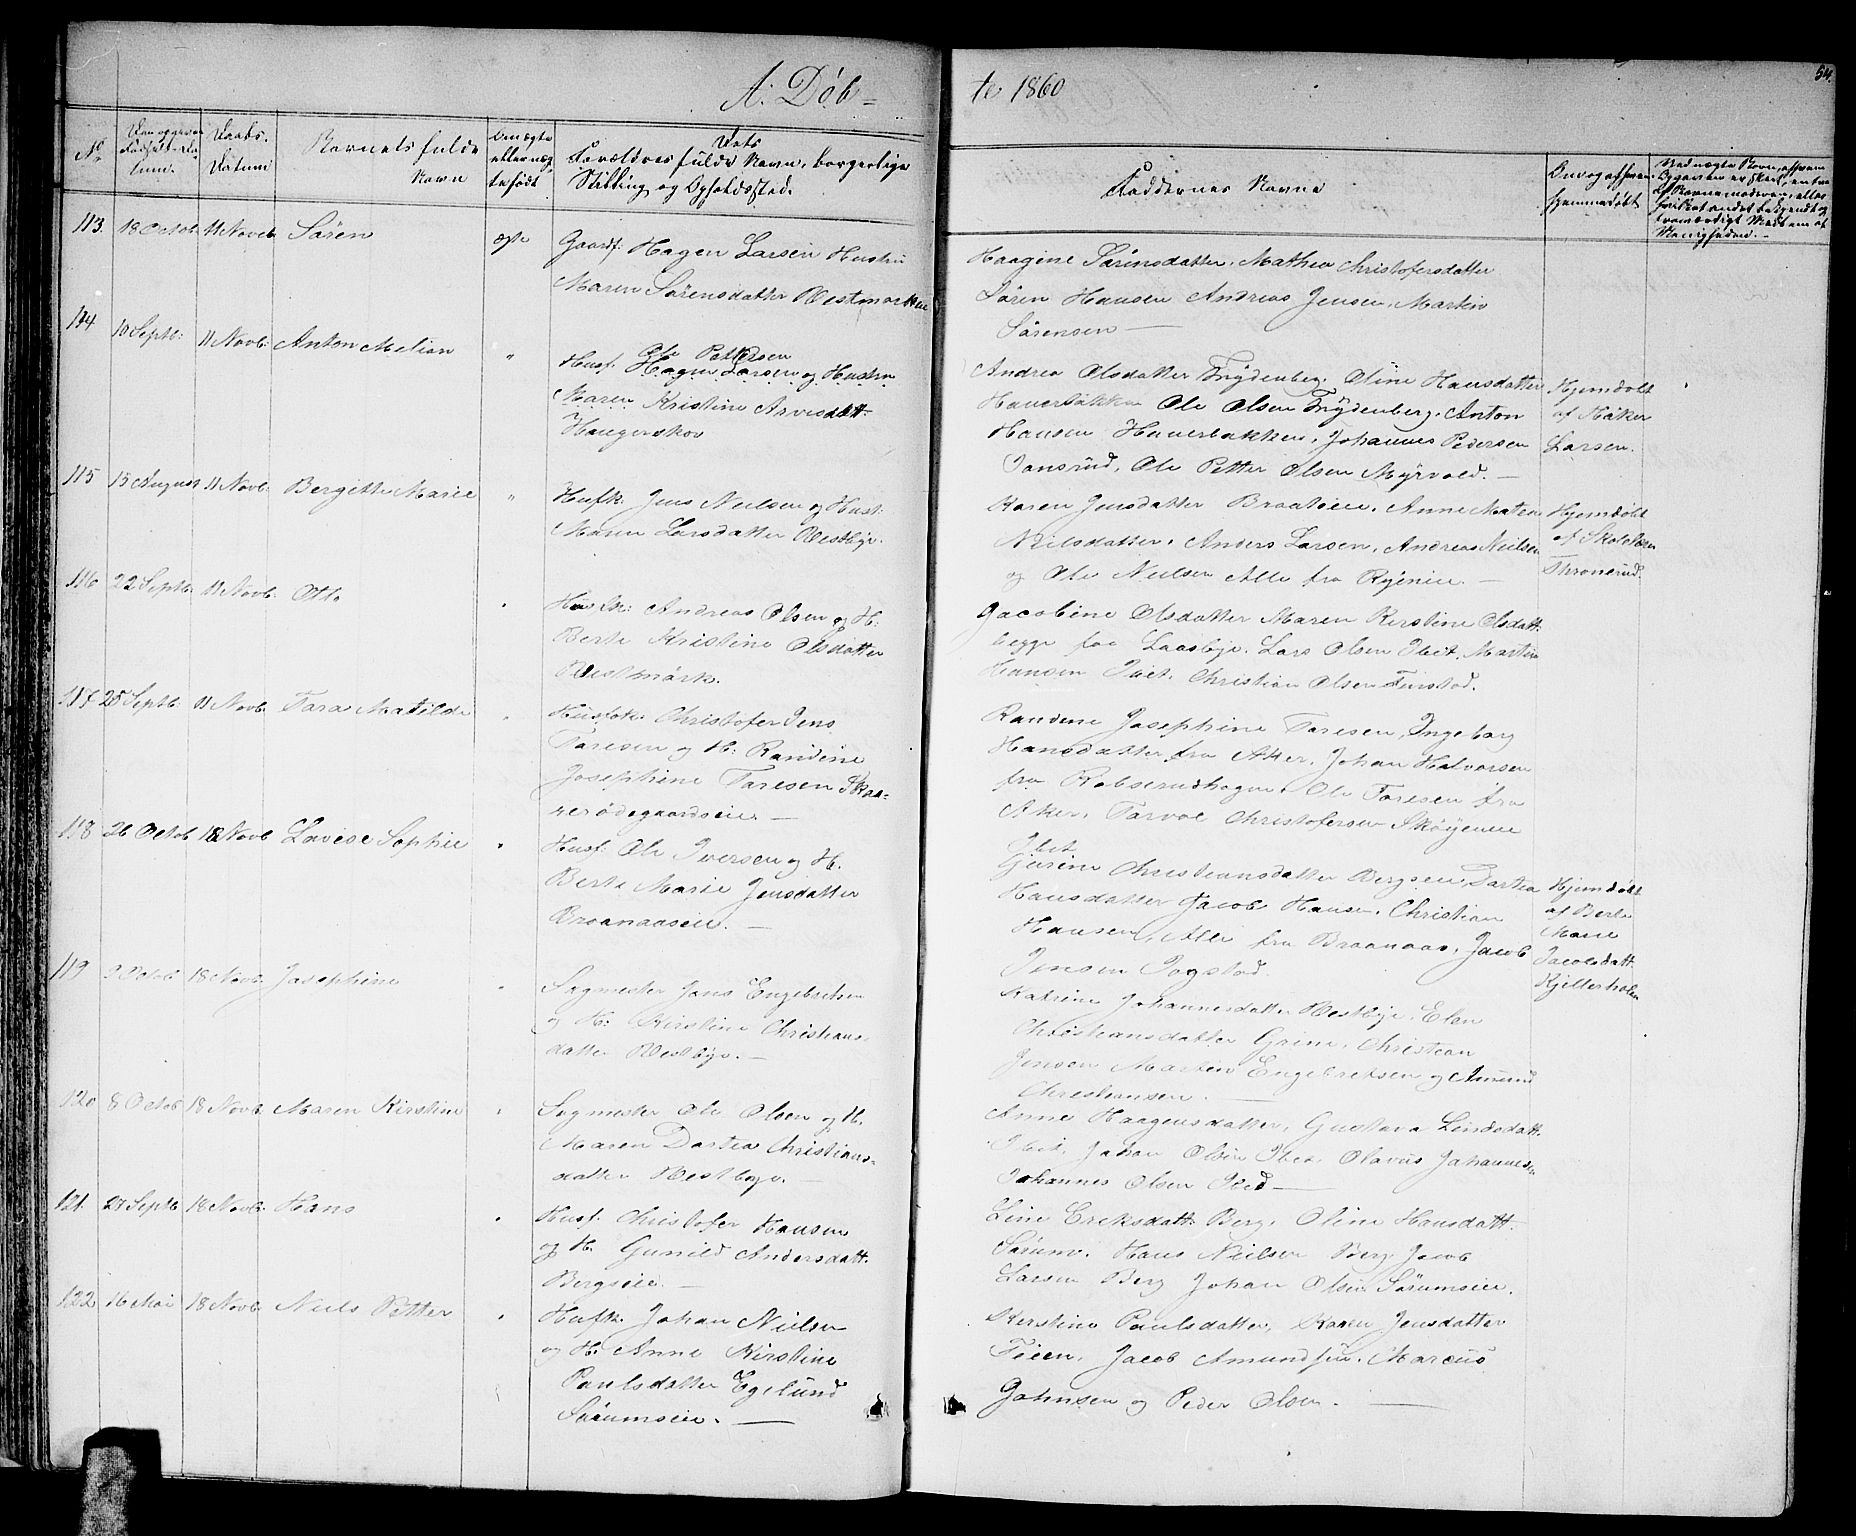 A. Döb-
te 1860
54.
No
Daabs-
Datum
Barnets fulde
Navn
Forældres fulde Navn, borgerlige
Stilling og Opholdssted.
Faddernes Navne
113. 18 Octob 11 Noveb Sören ægte Gaardf. Hagen Larsen Hustru
Maren Sörensdatter Westmarken
Haagine Sörensdatter, Mathea Christofersdatter
Sören Hansen Andreas Jensen, Martin
Sörensen —
114 10 Septb: 11 Novb: Anton Melian "
Ole Pettersen
Husf. Hagen Larsen og Hustru
Maren Kristine Arvesdatt
Haugerskov
Andrea Olsdatter Frydenberg, Oline Hansdatter
Haverbakken Ole Olsen Frydenberg, Anton
Hansen Haverbakken, Johannes Pedersen
Jonsrud, Ole Petter Olsen Myrvold. —
Hjemdöbt
af Haker
Larsen.
115 15 August 11 Novb: Bergitte Marie "
Husfk. Jens Nielsen og Hust:
Maren Larsdatter Westbye.
Karen Jensdatter Braateie, Anne Matea
Nilsdatter, Anders Larsen, Andreas Nielsen
og Ole Nielsen Alle fra Ryenie. —
Hjemdöbt
af Skolelærer
Thronerud.
116 22 Septb. 11 Novb: Otto "
Andreas Olsen og H:
Berte Kristine Olsdatter
Westmörk.
Jacobine Olsdatter Maren Kerstine Olsdatt:
begge fra Laasbye. Lars Olsen Ibit. Martin
Hansen Ibit. Christian Olsen Finstad.
117 25 Septb: 11 Novb. Tara Matilde "
Christofer Jens
Taresen og H: Randine
Josephine Taresen Skaa-
rerödegaardseie. —
Randine Josephine Taresen, Ingeborg
Hansdatter fra Aker, Johan Halvorsen
fra Robsrudhagen, Ole Taresen fra
Aker. Tarvol Christofersen Sköyeneie
Ibit
118 26 Octob 18 Novb Lovise Sophie "
Husf. Ole Iversen og H.
Berte Marie Jensdatter
Braanaaseie. —
Gjurine Christiansdatter Bergseie, Dartea
Hansdatter Jacob Hansen, Christian
Hansen, Alle fra Braanaas, Jacob
Jensen Togstad.
Hjemdöbt
af Berte
Marie
Jacobsdatt.
Kjelterholen
119 Octob 18 Novb. Josephine "
Sagmester Jens Engebretsen
og H: Kirstine Christians-
datter Westbye. —
Katrine Johannesdatter Westbye, Elen
Christiansdatter Grine, Christian
Jensen Martin Engebretsen og Amund
Christiansen. —
120 8 Octob 18 Novb. Maren Kirstine "
Sagmester Ole Olsen og H.
Maren Dartea Christians-
datter Westbye. —
Anne Haagensdatter, Gustava Lindsdatt.
Ibit, Johan Olsen Ibit Olavus Johannesen
Johannes Olsen Ibid —
121. 27 Septb 18 Novb: Hans "
Husf. Christofer Hansen
og H. Gunild Andersdatt.
Bergseie —
Line Eriksdatt: Berg, Oline Hansdatt.
Sörum, Hans Nielsen Berg Jacob
Larsen Berg Johan Olsen Sörumseie.
122 16 Mai 18 Novb. Niels Petter "
Husfk. Johan Nielsen
og H. Anne Kirstine
Paulsdatter Egelund
Sörumseie. —
Kerstine Paulsdatter, Karen Jensdatter
Teien, Jacob Amundsen, Marcus
Johnsen og Peder Olsen. —